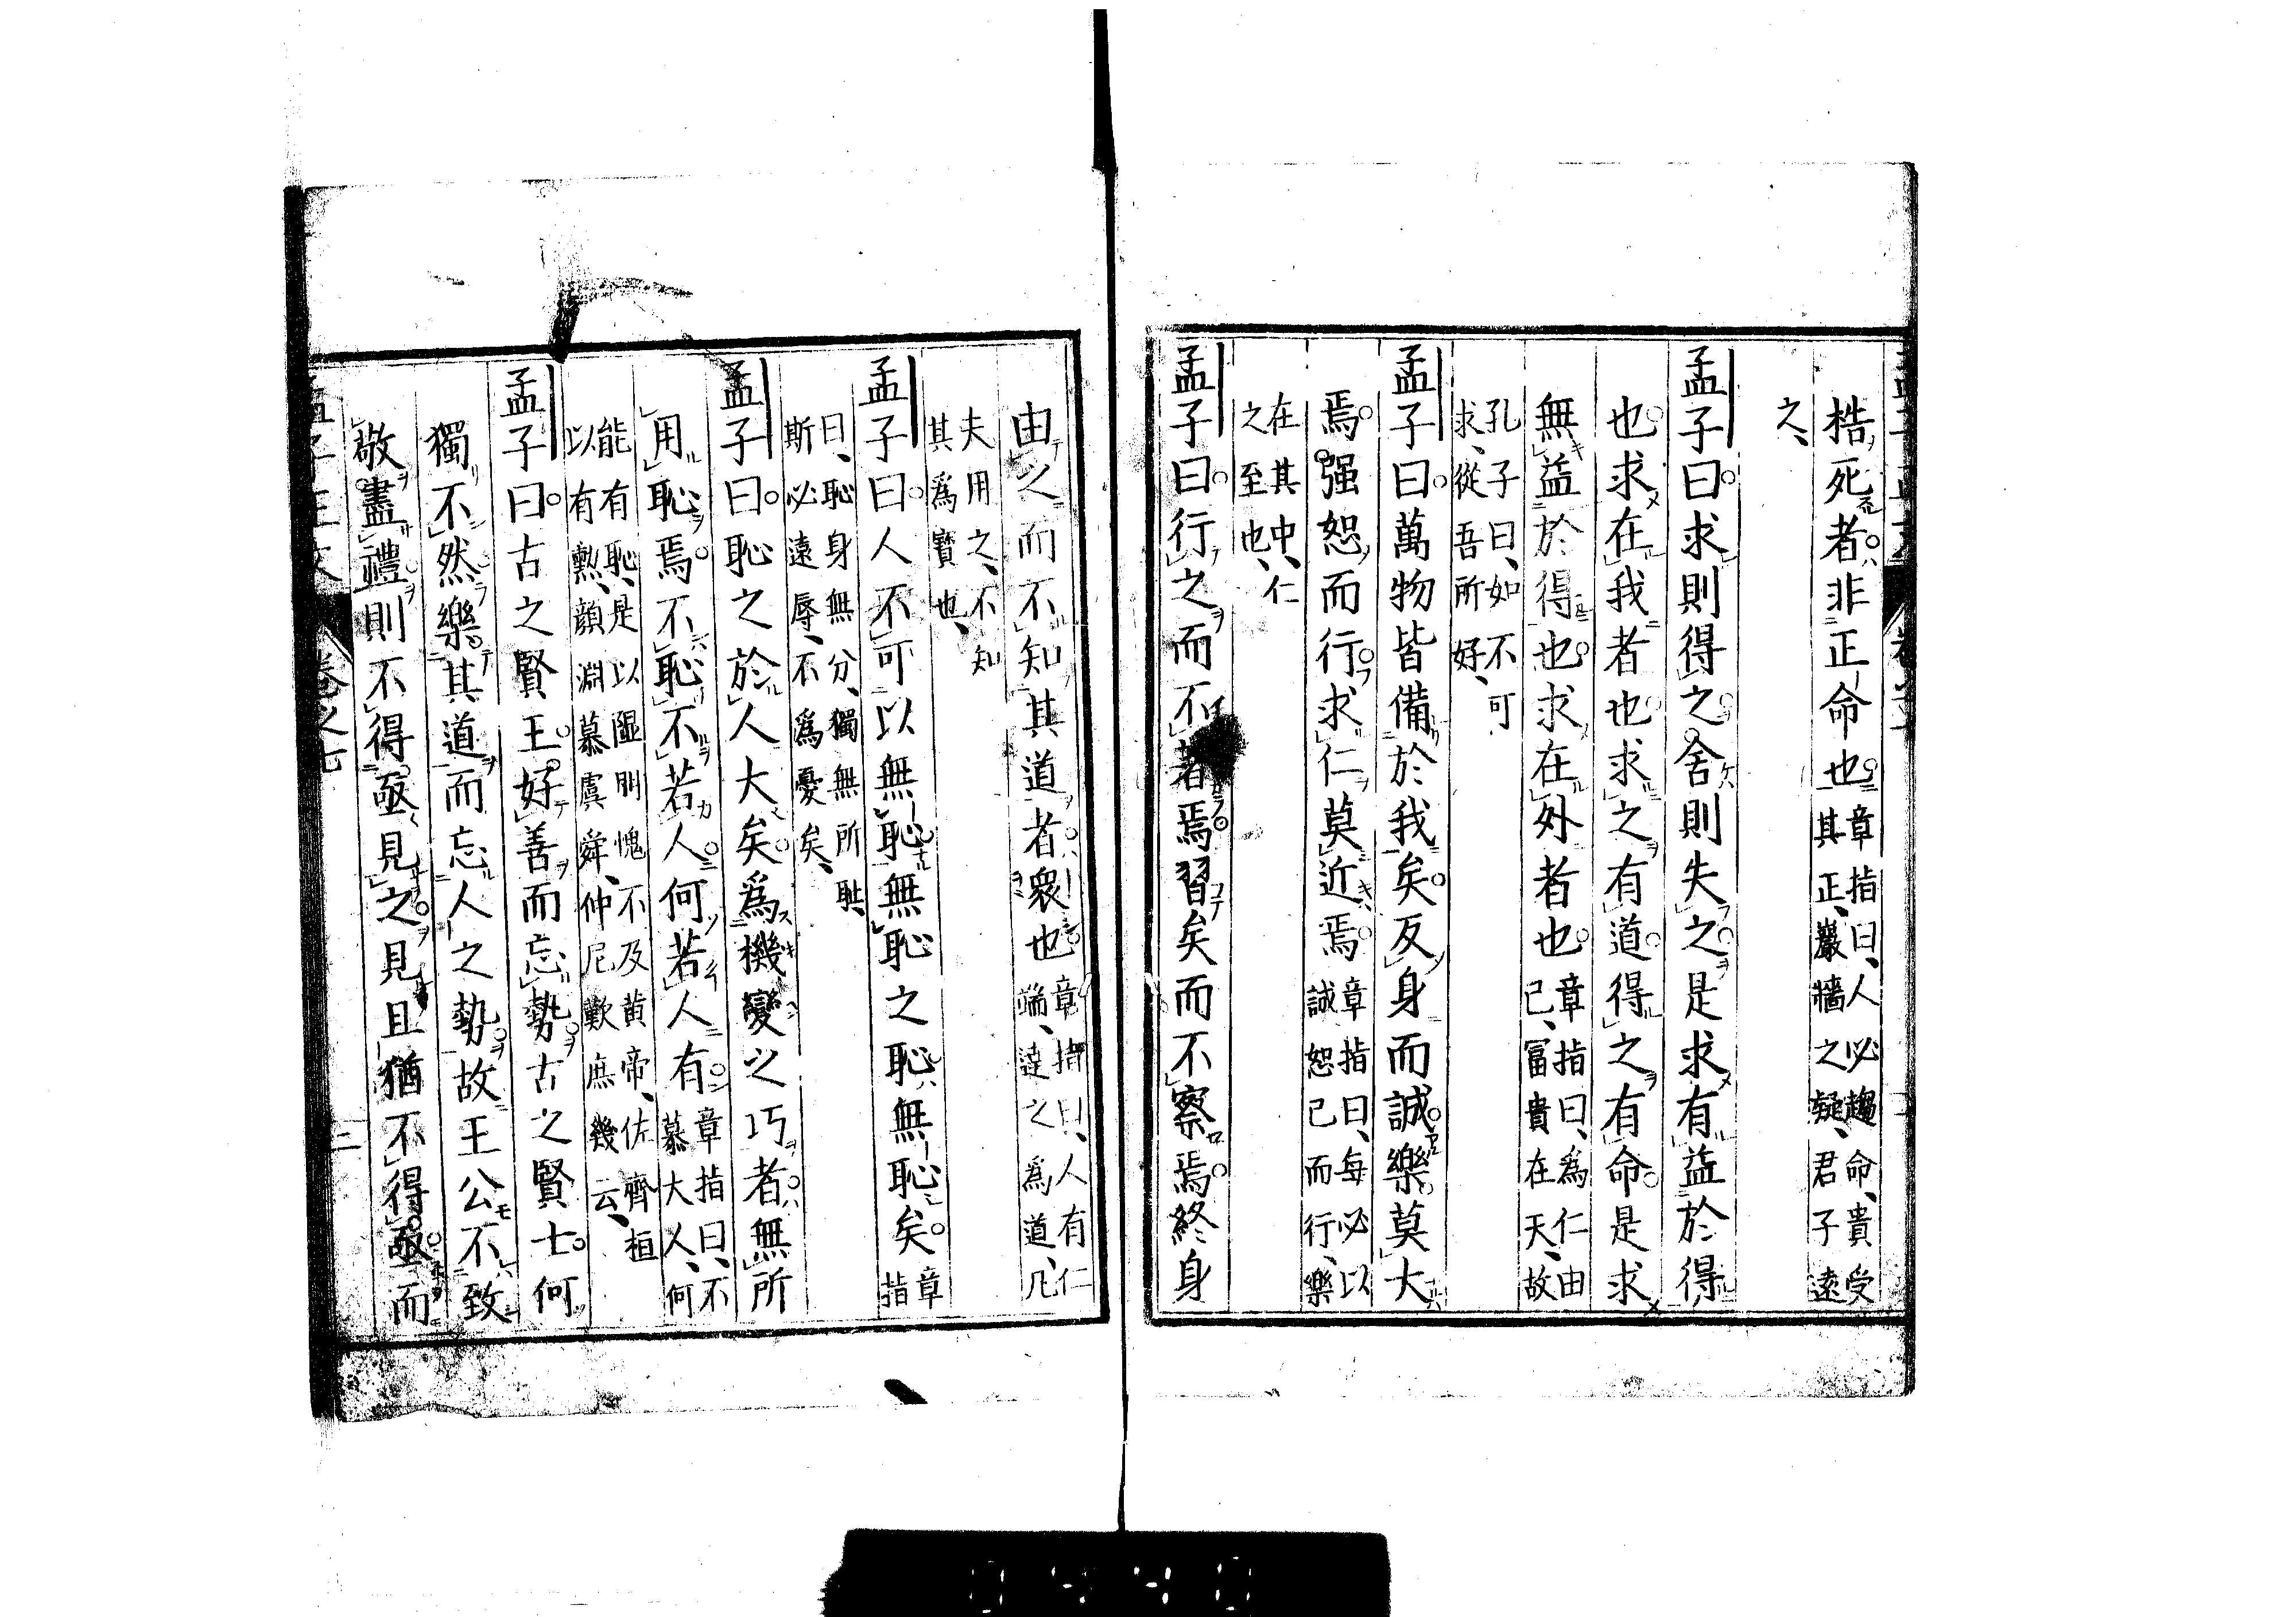 梏死者非正命也章指曰、人必趨命、貴受
其正、巖牆之疑、君子遠
之、
孟子曰求則得之舍則失之是求有益於得
也求在我者也求之有道得之有命是求
無益於得也求在外者也章指曰、為仁由
己、富貴在天、故
孔子曰、如不可
求、從吾所好、
孟子曰萬物皆備於我矣反身而誠樂莫大
焉强恕而行求仁莫近焉章指曰、每必以
誠恕己而行、樂
在其中、仁
之至也、
孟子曰行之而不著焉習矣而不察焉終身
由之而不知其道者衆也章指曰、人有仁
端、達之為道、凡
夫用之、不知
其爲寳也、
孟子曰人不可以無恥無恥之恥無恥矣章
指
曰、恥身無分、獨無所恥、
斯必遠辱、不爲憂矣、
孟子曰恥之於人大矣爲機變之巧者無所
用恥焉不恥不若人何若人有章指曰、不
慕大人、何
能有恥、是以隰朋愧不及黄帝、佐齊桓
以有勲、顔淵慕虞舜、仲尼歎庶幾云、
孟子曰古之賢王好善而忘勢古之賢士何
獨不然樂其道而忘人之勢故王公不致
敬盡禮則不得亟見之見且猶不得亟而
卷之七
二